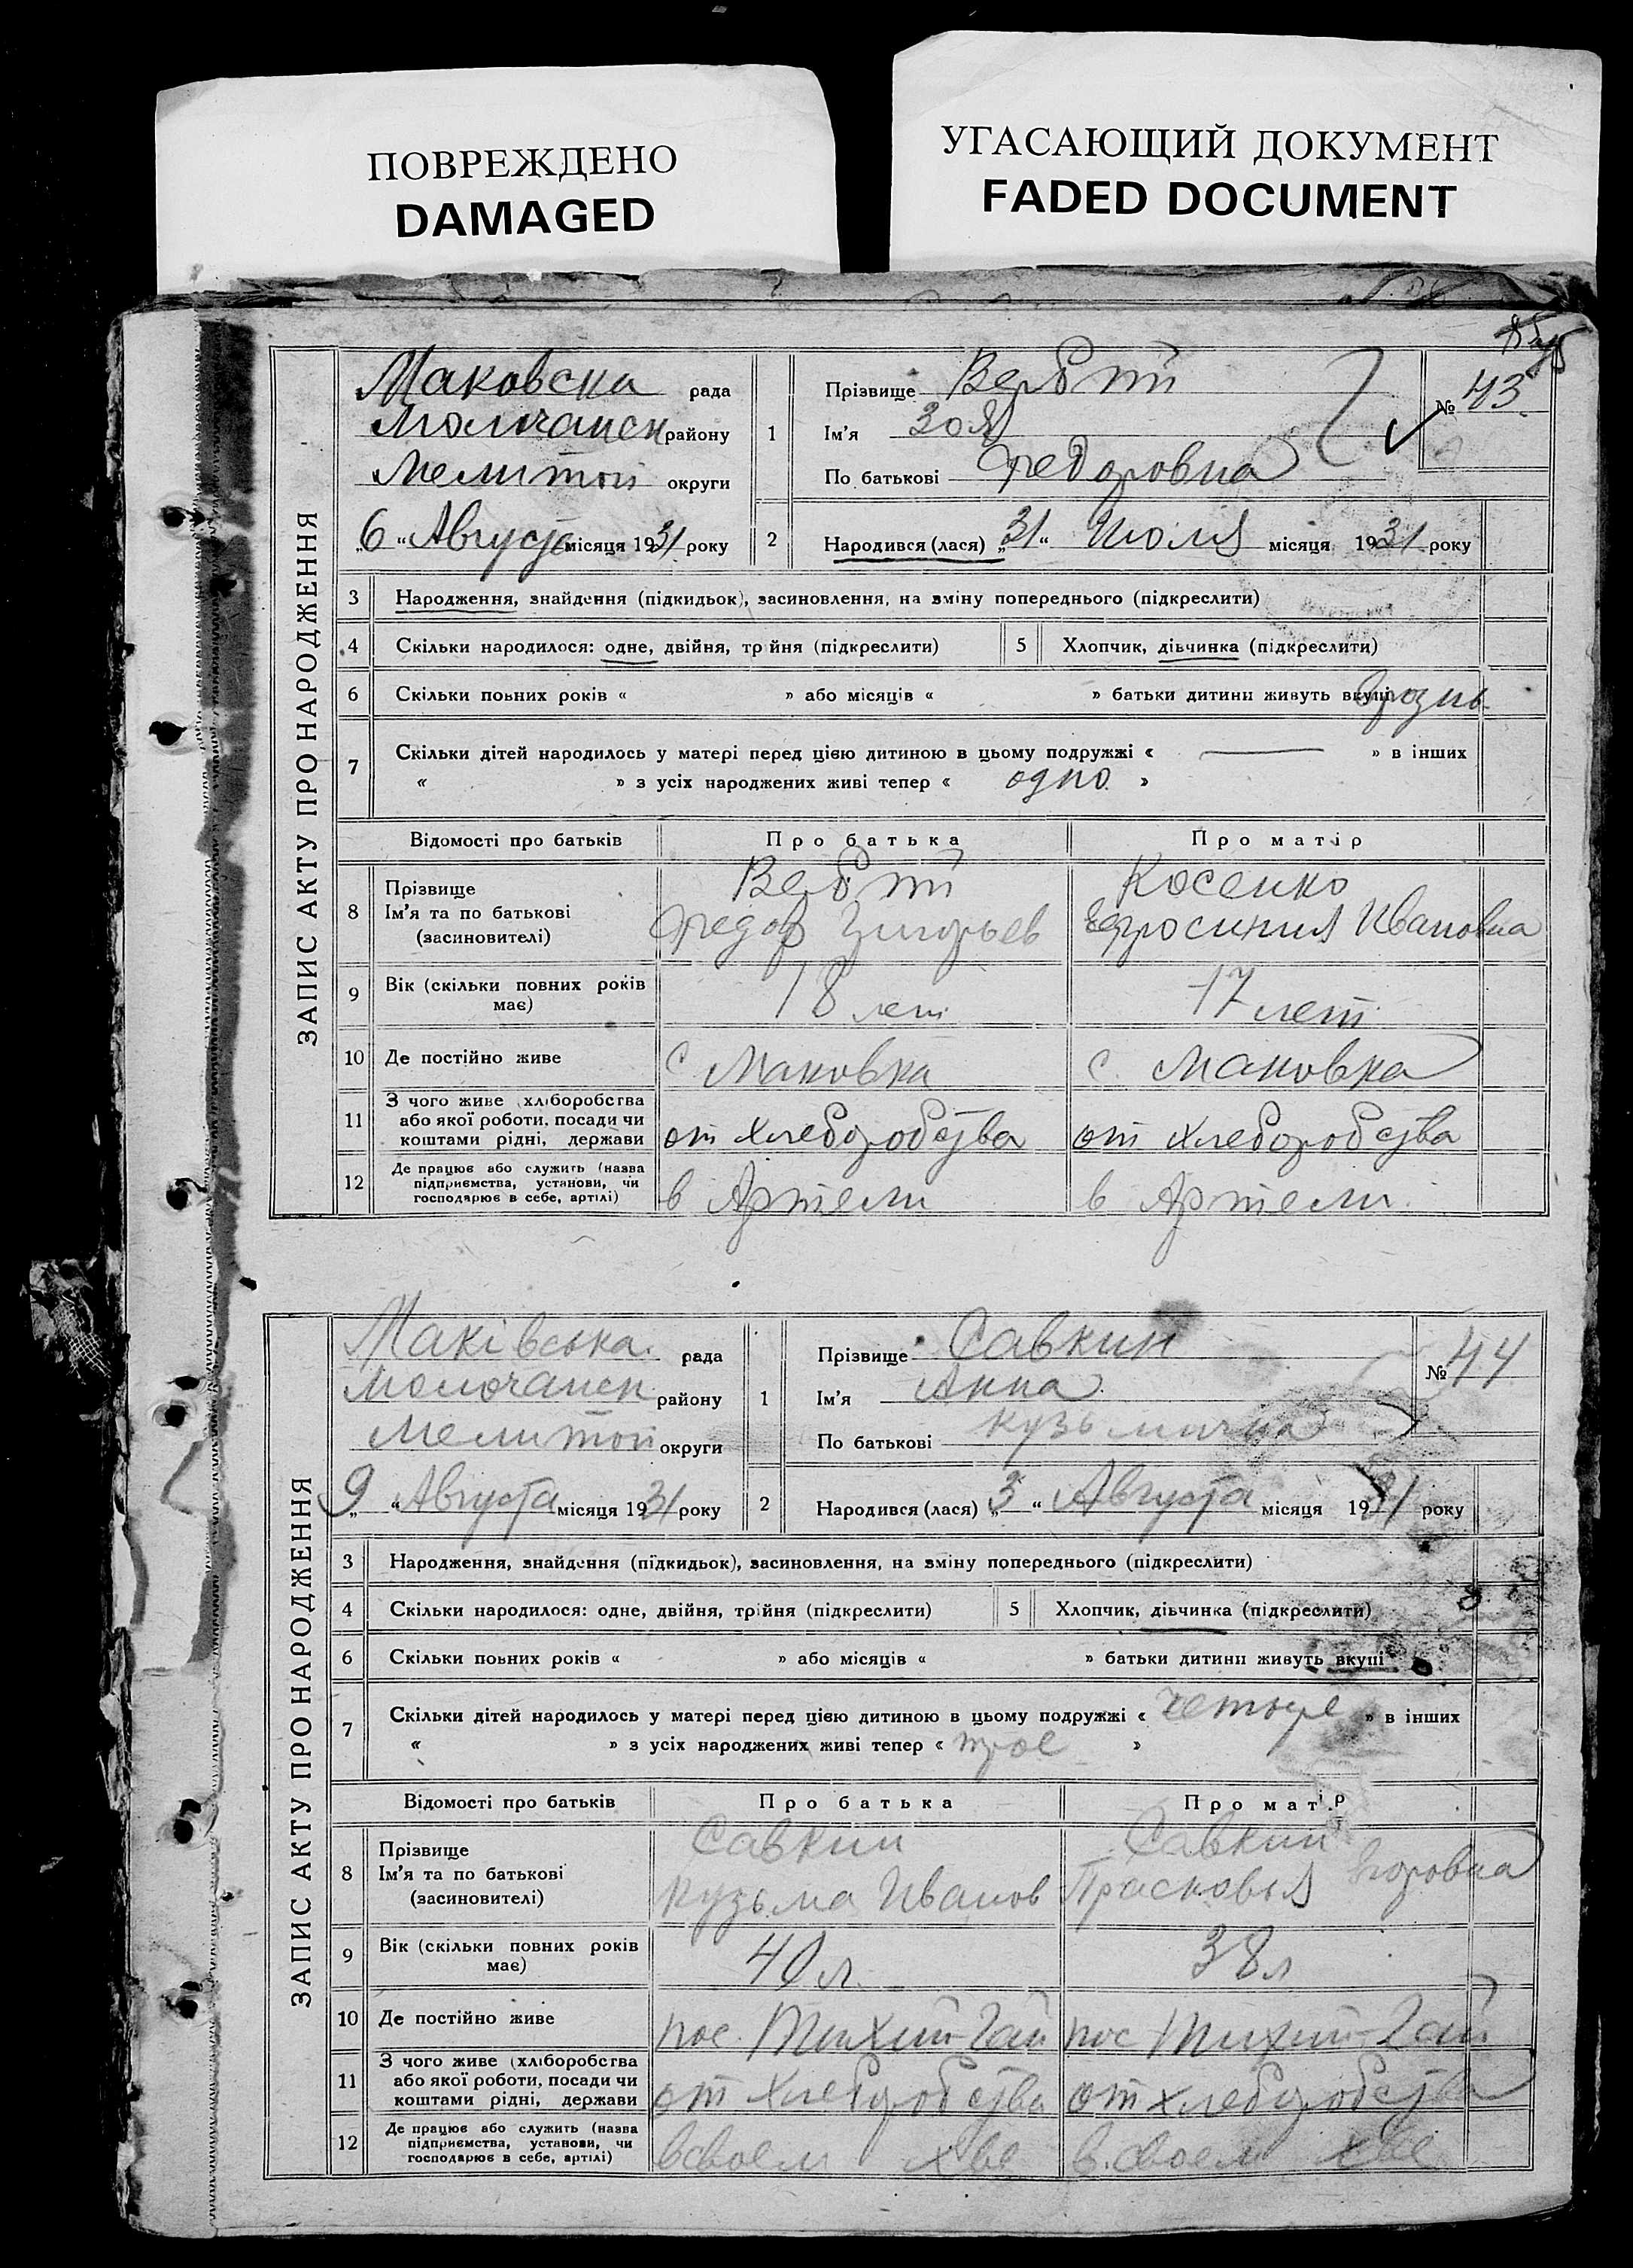 ПОВРЕЖДЕНО
DAMAGED
УГАСАЮЩИЙ ДОКУМЕНТ
FADED DOCUMENT
ЗАПИС АКТУ ПРО НАРОДЖЕННЯ
Маковска рада
Молочанск району
Мелитоп округи
„6“ Августа місяця 1931 року
1 Прізвище Верб
Ім'я Зоя
По батькові Федоровна
№ 43
2 Народився (лася) „31“ Июля місяця 1931 року
3 Народження, знайдення (підкидьок), засиновлення, на зміну попереднього (підкреслити)
4 Скільки народилося: одне, двійня, трійня (підкреслити) 5 Хлопчик, дівчинка (підкреслити)
6 Скільки повних років « » або місяців « » батьки дитини живуть вкупі врозь
7 Скільки дітей народилось у матері перед цією дитиною в цьому подружжі « — » в інших
« » з усіх народжених живі тепер « одно »
Відомості про батьків Про батька Про матір
8 Прізвище
Ім'я та по батькові
(засиновителі)
Федор Григорьев
Косенко
Ефросиния Ивановна
9 Вік (скільки повних років має) 18 лет 17 лет
10 Де постійно живе с Маковка с. Маковка
11 З чого живе (хліборобства
або якої роботи, посади чи
коштами рідні, держави
от хлеборобства от хлеборобства
12 Де працює або служить (назва
підприємства, установи, чи
господарює в себе, артілі)
в Артели в Артели
ЗАПИС АКТУ ПРО НАРОДЖЕННЯ
Маківська рада
Молочанск району
Мелитоп округи
„9“ Августа місяця 1931 року
1 Прізвище Савкин
Ім'я Анна
По батькові Кузьмична
№ 44
2 Народився (лася) „3“ Августа місяця 1931 року
3 Народження, знайдення (підкидьок), засиновлення, на зміну попереднього (підкреслити)
4 Скільки народилося: одне, двійня, трійня (підкреслити) 5 Хлопчик, дівчинка (підкреслити)
6 Скільки повних років « » або місяців « » батьки дитини живуть вкупі
7 Скільки дітей народилось у матері перед цією дитиною в цьому подружжі « четыре » в інших
« » з усіх народжених живі тепер « трое »
Відомості про батьків Про батька Про матір
8 Прізвище
Ім'я та по батькові
(засиновителі)
Савкин
Кузьма Иванов
Савкин
Прасковья Егоровна
9 Вік (скільки повних років має) 40 л. 38 л
10 Де постійно живе пос. Тихий-Гай пос Тихий-Гай
11 З чого живе (хліборобства
або якої роботи, посади чи
коштами рідні, держави
от хлеборобства от хлеборобства
12 Де працює або служить (назва
підприємства, установи, чи
господарює в себе, артілі)
в своем х-ве в своем х-ве